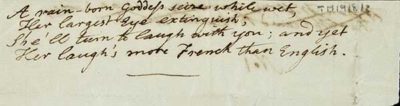 A rain-born Goddess seize while wet,
Her largest Eye extinguish;
She'll turn to laugh with you; and yet
Her laugh's more French than English.